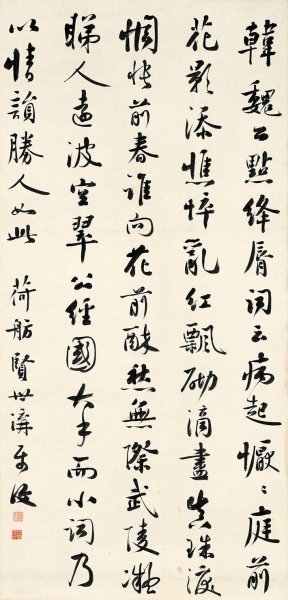 韓魏公點絳脣詞云病起懨〻庭前
花影添憔悴亂紅飄砌滴盡真珠淚
惆悵前春誰向花前醉愁無際武陵凝
睇人遠波空翠公經國大手而小詞乃
以情韻勝人如此
荷舫賢世講